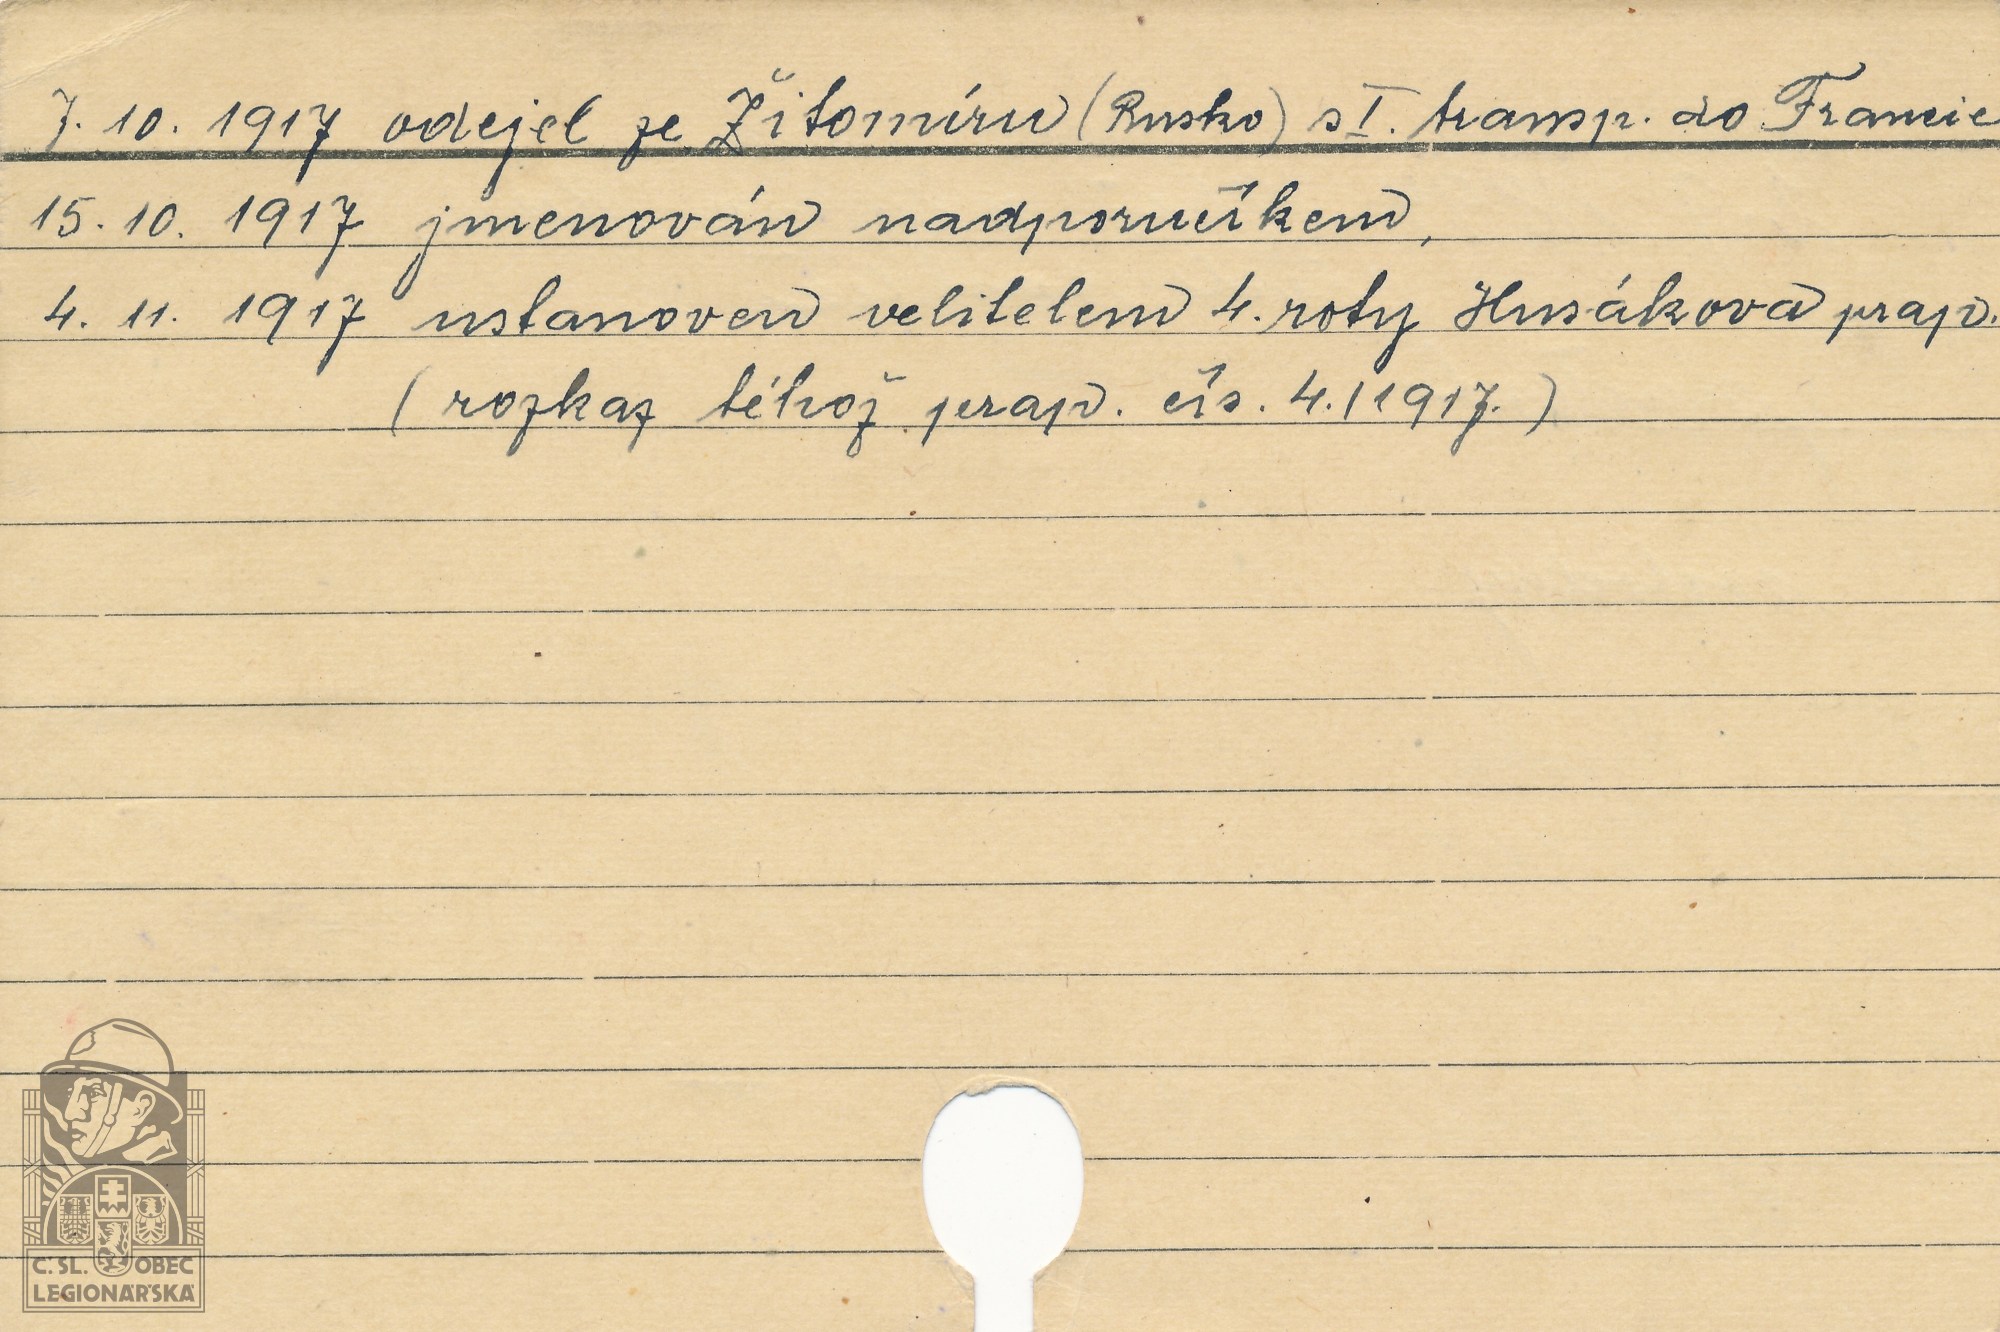 7. 10. 1917 odejel ze Žitomíru (Rusko) s I. transp. do Francie
15. 10. 1917 jmenován nadporučíkem,
4. 11. 1917 ustanoven velitelem 4. roty Husákova prap.
(rozkaz téhož prap. čís. 4./1917.)
Č.SL. OBEC
LEGIONÁŘSKÁ